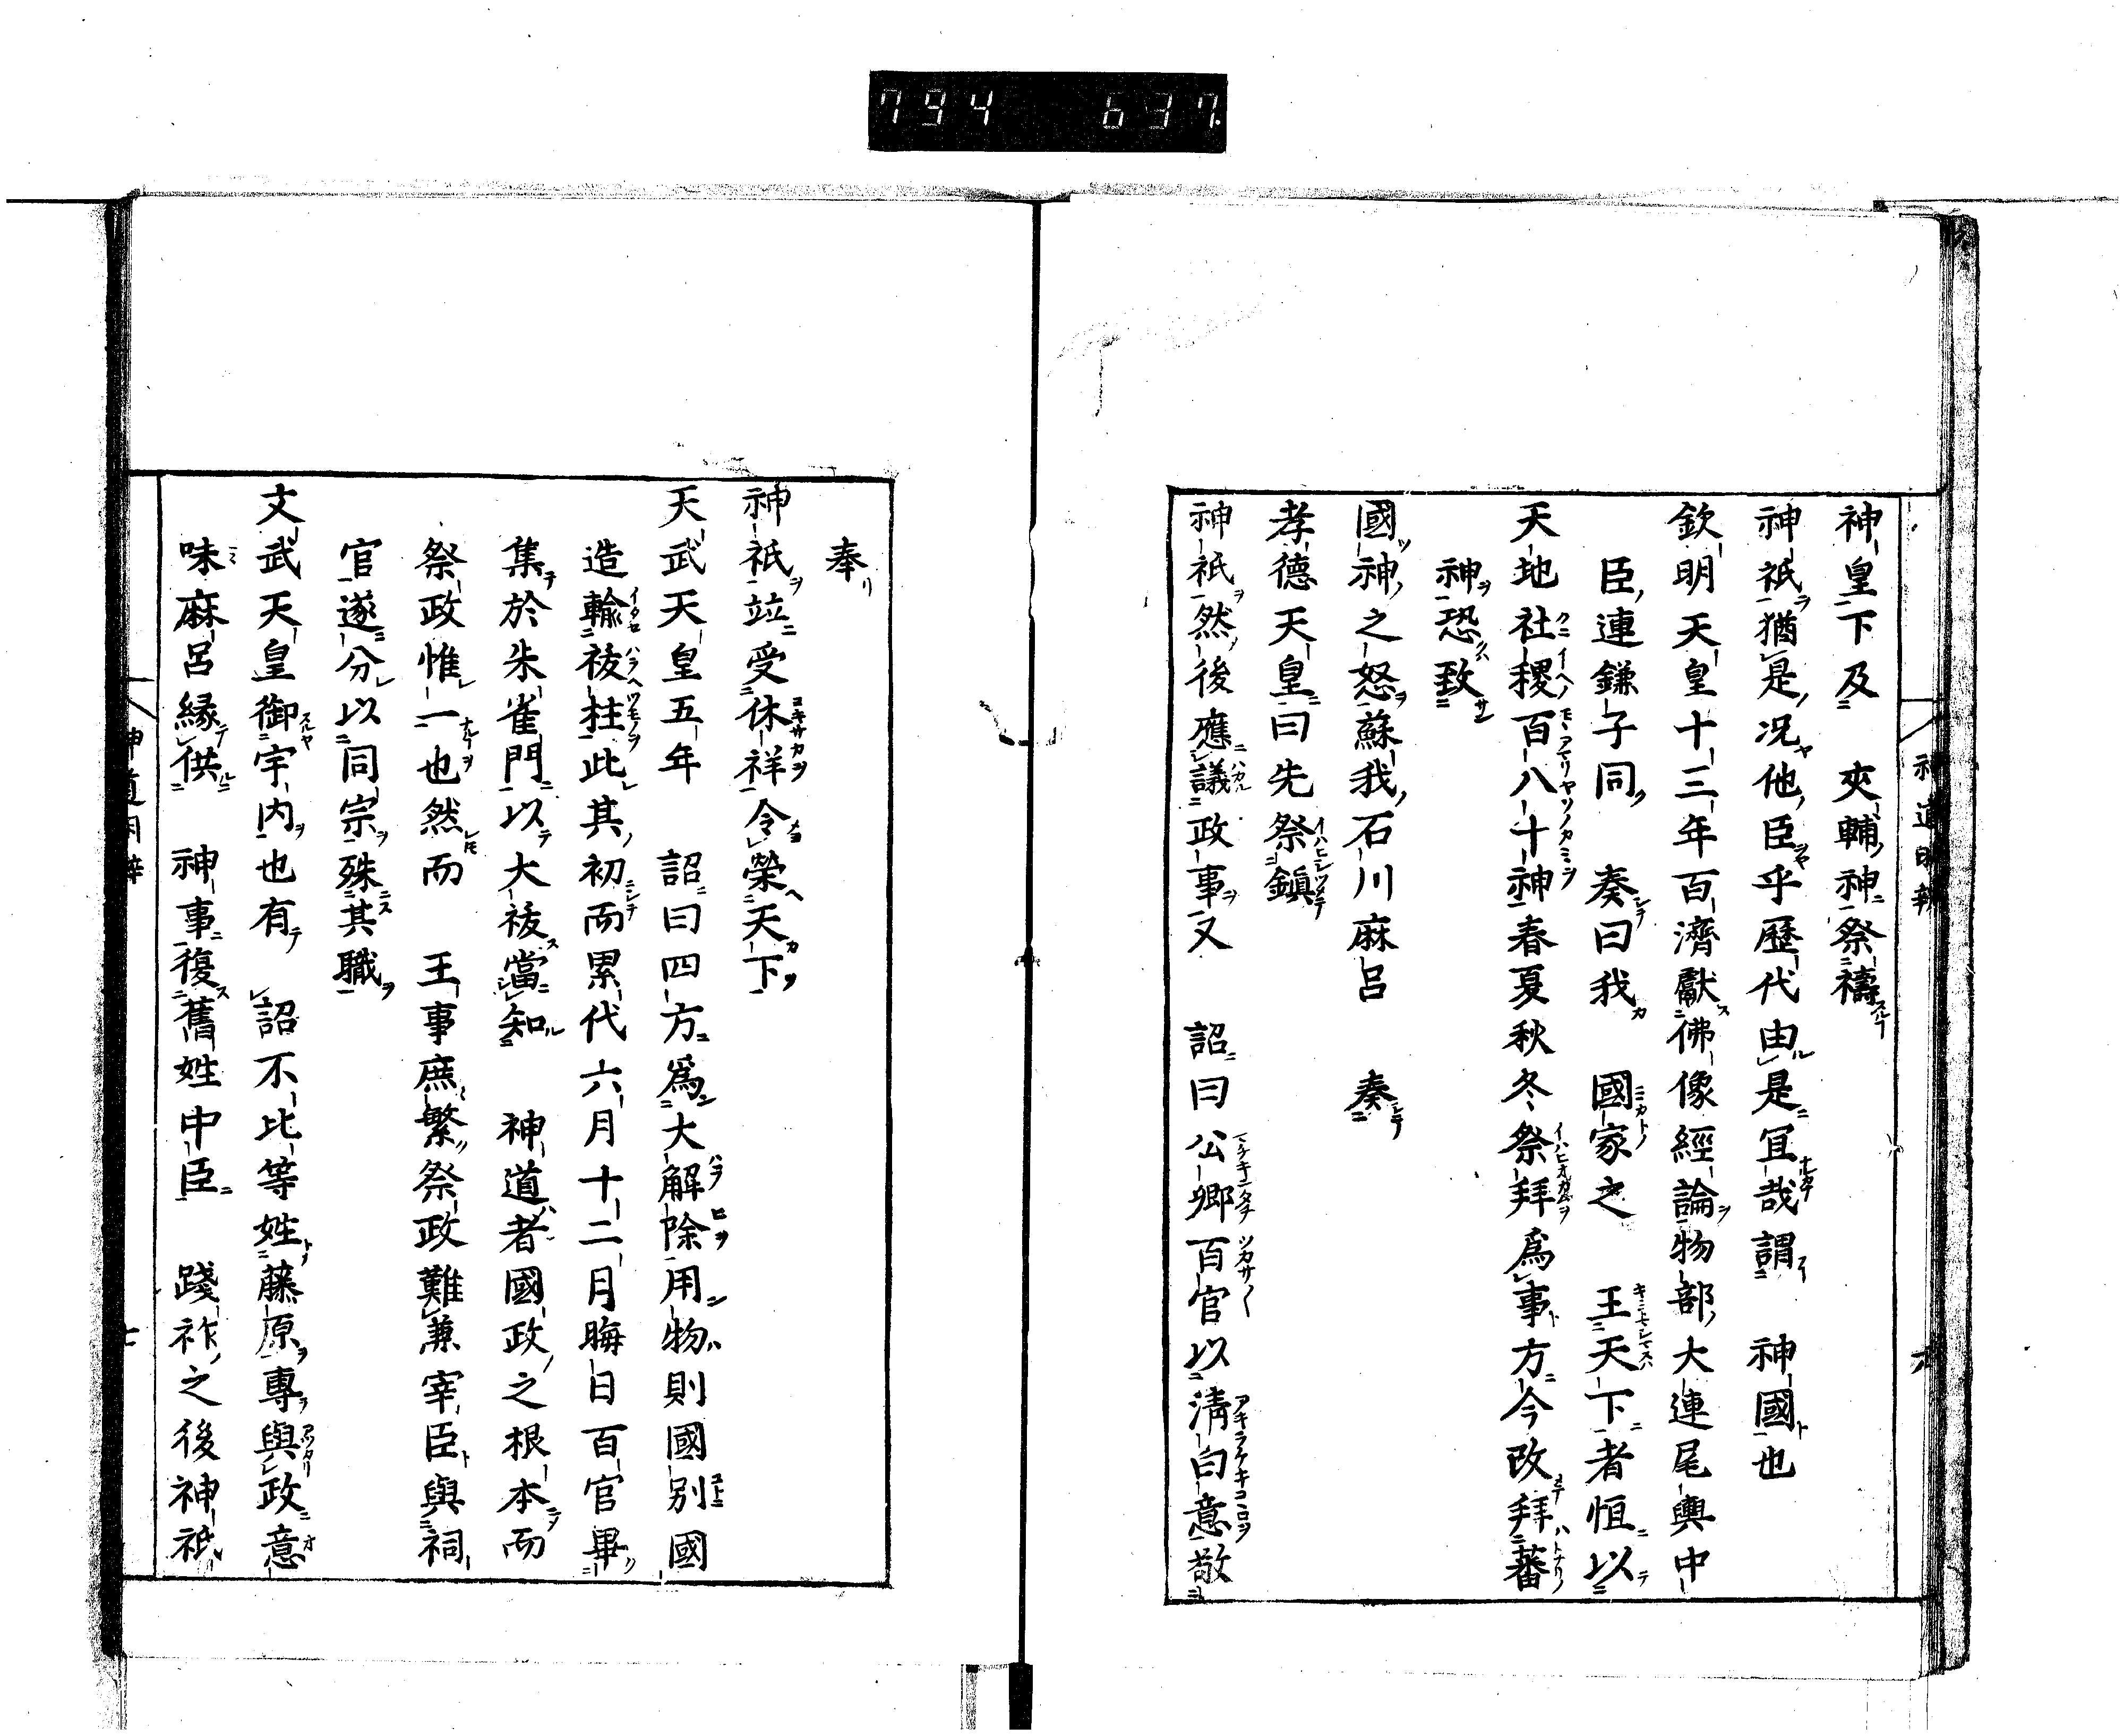 794 637.
神道明辨
六
神皇下及　夾輔神祭禱
神祇猶是況他臣乎歷代由是冝哉謂　神國也
欽明天皇十三年百濟獻佛像經論物部大連尾輿中
臣連鎌子同　奏曰我　國家之　王天下者恒以
天地社稷百八十神春夏秋冬祭拜爲事方今改拜蕃
神恐致
國神之怒蘇我石川麻呂　奏
孝德天皇曰先祭鎭
神祇然後應議政事又　詔曰公卿百官以淸白意敬
奉
神祇竝受休祥令榮天下
天武天皇五年　詔曰四方爲大解除用物則國別國
造輸祓柱此其初而累代六月十二月晦日百官畢
集於朱雀門以大祓當知　神道者國政之根本而
祭政惟一也然而　王事庶繁祭政難兼宰臣與祠
官遂分以同宗殊其職
文武天皇御宇內也有　詔不比等姓藤原專與政意
味麻呂緣供　神事復舊姓中臣　踐祚之後神祇
神道明辨
七